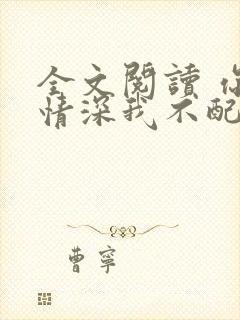 全文閱讀 你
情深我不配
曹寧